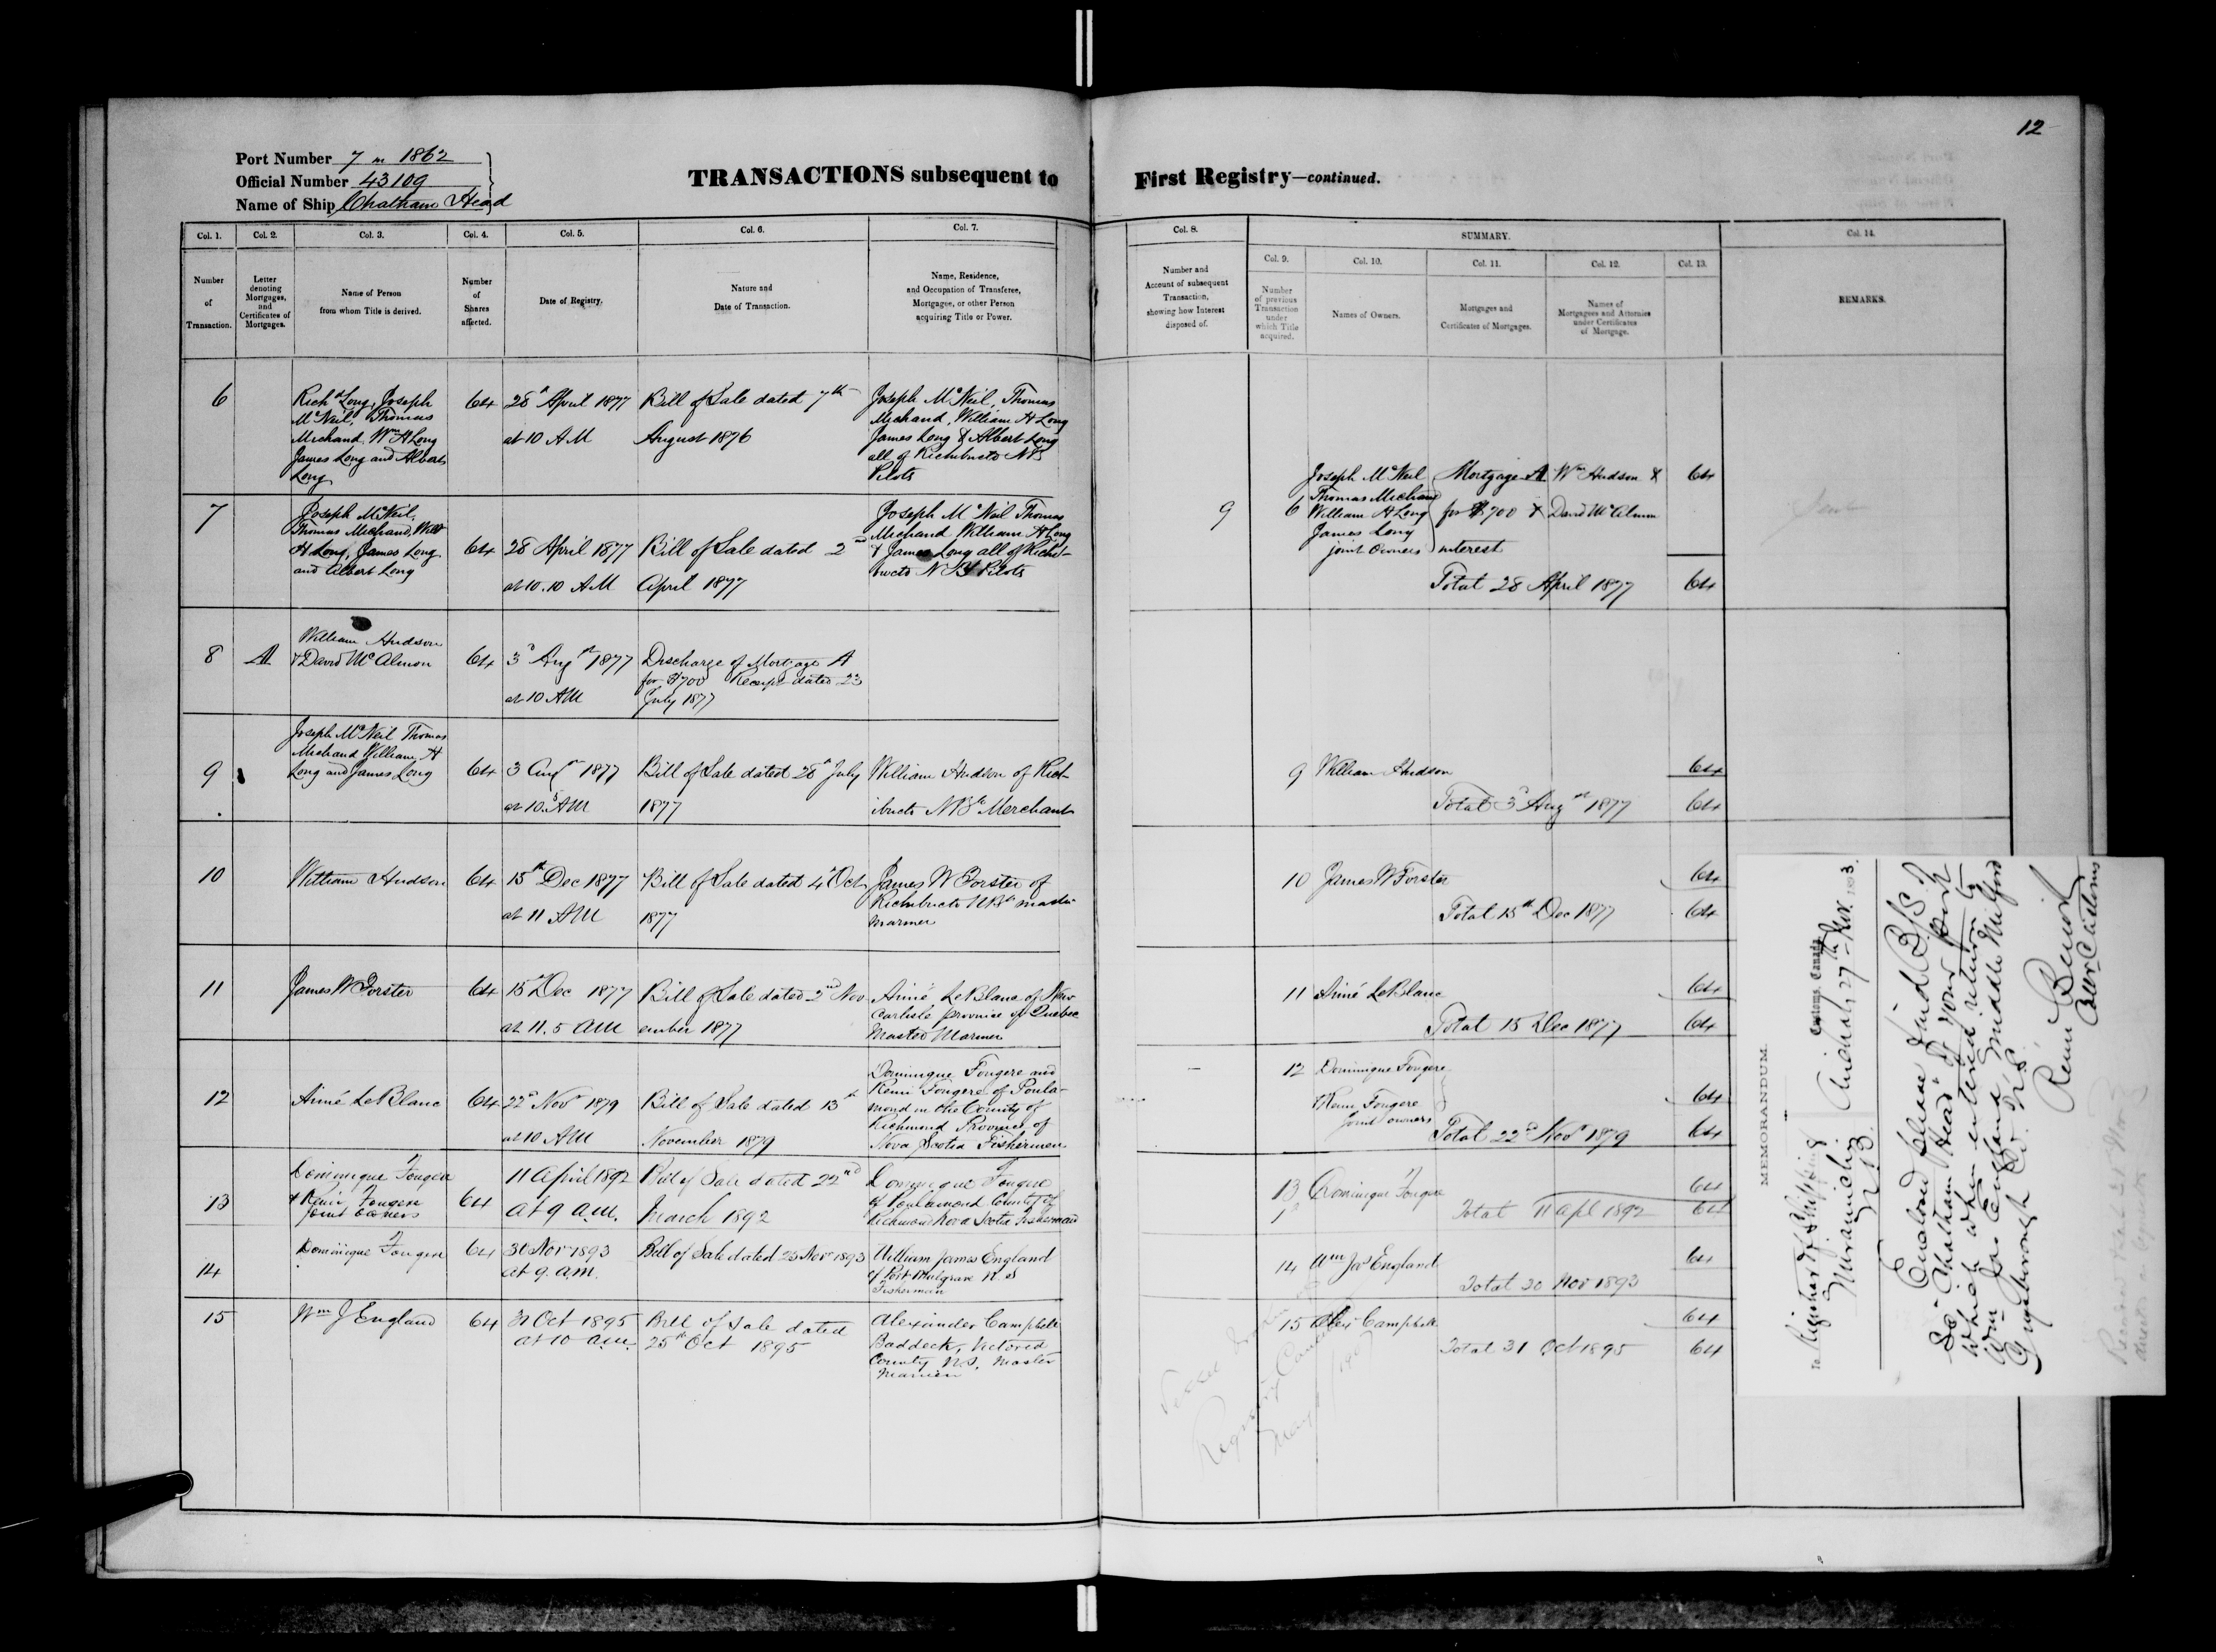 12
Port Number 7 in 1862
Official Number 43109
Name of Ship Chatham Head
TRANSACTIONS subsequent to First Registry—continued.
Col. 1.
Number
of
Transaction.
Col. 2.
Letter
denoting
Mortgages,
and
Certificates of
Mortgages.
Col. 3.
Name of Person
from whom Title is derived.
Col. 4.
Number
of
Shares
affected.
Col. 5.
Date of Registry.
Col. 6.
Nature and
Date of Transaction.
Col. 7.
Name, Residence,
and Occupation of Transferee,
Mortgagee, or other Person
acquiring Title or Power.
Col. 8.
Number and
Account of subsequent
Transaction,
showing how Interest
disposed of.
SUMMARY.
Col. 9.
Number
of previous
Transaction
under
which Title
acquired.
Col. 10.
Names of Owners.
Col. 11.
Mortgages and
Certificates of Mortgages.
Col. 12.
Names of
Mortgagees and Attornies
under Certificates
of Mortgage.
Col. 13.
Col. 14.
REMARKS.
6
Richd Long, Joseph
McNeil, Thomas
Michaud, Wm H Long
James Long and Albert
Long
64
28th April 1877
at 10 AM
Bill of Sale dated 7th
August 1876
Joseph McNeil, Thomas
Michaud, William H Long
James Long & Albert Long
all of Richibucto NB
Pilots
7
Joseph McNeil,
Thomas Michaud, Will
H Long, James Long
and Albert Long
64
28 April 1877
at 10.10 AM
Bill of Sale dated 2nd
April 1877
Joseph McNeil Thomas
Michaud William H Long
& James Long all of Richi-
bucto NB Pilots
9
6
Joseph McNeil
Thomas Michaud
William H Long
James Long
joint Owners
Mortgage A
for $700 &
interest
Wm Hudson &
David McAlmon
64
Total 28 April 1877
64
8
A
William Hudson
& David McAlmon
64
3d Augst 1877
at 10 AM
Discharge of Mortgage A
for $700 Receipt dated 23
July 1877
9
Joseph McNeil Thomas
Michaud William H
Long and James Long
64
3 Augst 1877
at 10.5 AM
Bill of Sale dated 28th July
1877
William Hudson of Rich-
ibucto NBk Merchant
9
William Hudson
64
Total 3d Augst 1877
64
10
William Hudson
64
15th Dec 1877
at 11 AM
Bill of Sale dated 4th Oct
1877
James W Forster of
Richibucto NBk master
mariner
10
James W Forster
64
Total 15th Dec 1877
64
11
James W Forster
64
15th Dec 1877
at 11.5 AM
Bill of Sale dated 2nd Nov
ember 1877
Aimé LeBlanc of New
Carlisle province of Quebec
Master Mariner
11
Aimé LeBlanc
64
Total 15 Dec 1877
64
12
Aimé LeBlanc
64
22d Novr 1879
at 10 AM
Bill of Sale dated 13th
November 1879
Dominique Fougere and
Remi Fougere of Poula-
mond in the County of
Richmond Province of
Nova Scotia Fishermen
12
Dominique Fougere
& Remi Fougere
joint owners
64
Total 22d Novr 1879
64
13
Dominique Fougere
& Remi Fougere
joint owners
64
11 April 1892
at 9 a.m.
Bill of Sale dated 22nd
March 1892
Dominique Fougere
of Poulamond County of
Richmond Nova Scotia Fisherman
13
Dominique Fougere
64
Total 11 Apl 1892
64
14
Dominique Fougere
64
30 Nov 1893
at 9. a.m.
Bill of Sale dated 25 Nov 1893
William James England
of Port Mulgrave N.S
Fisherman
14
Wm Jas England
64
Total 30 Nov 1893
15
Wm J England
64
31 Oct 1895
at 10 a.m.
Bill of Sale dated
25th Oct 1895
Alexander Campbell
Baddeck, Victoria
County N.S. Master
Mariner
15
Alex Campbell
64
Total 31 Oct 1895
64
Registry
MEMORANDUM.
Customs, Canada,
Arichat, 27th Nov. 1893.
To Registrar of Shipping
Miramichi
N.B.
Enclosed please find B/S of
Sc "Chatham Head" of your port
which when entered return to
Wm Jas England Middle Milford
Guysborough Co. N.S.
Remi Benoit
Collr Customs